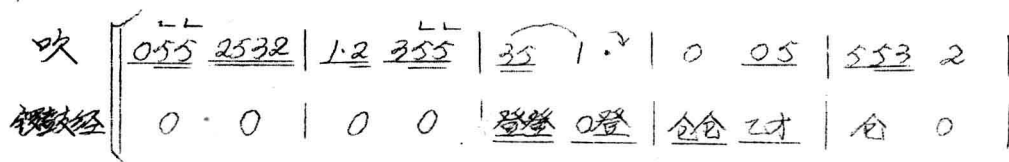 吹 055 2532 | 1·2 355 | 35 1· | 0 05 | 553 2 |
锣鼓经 0 · 0 | 0 0 | 登登 0登 | 仓仓 乙才 | 仓 0 |